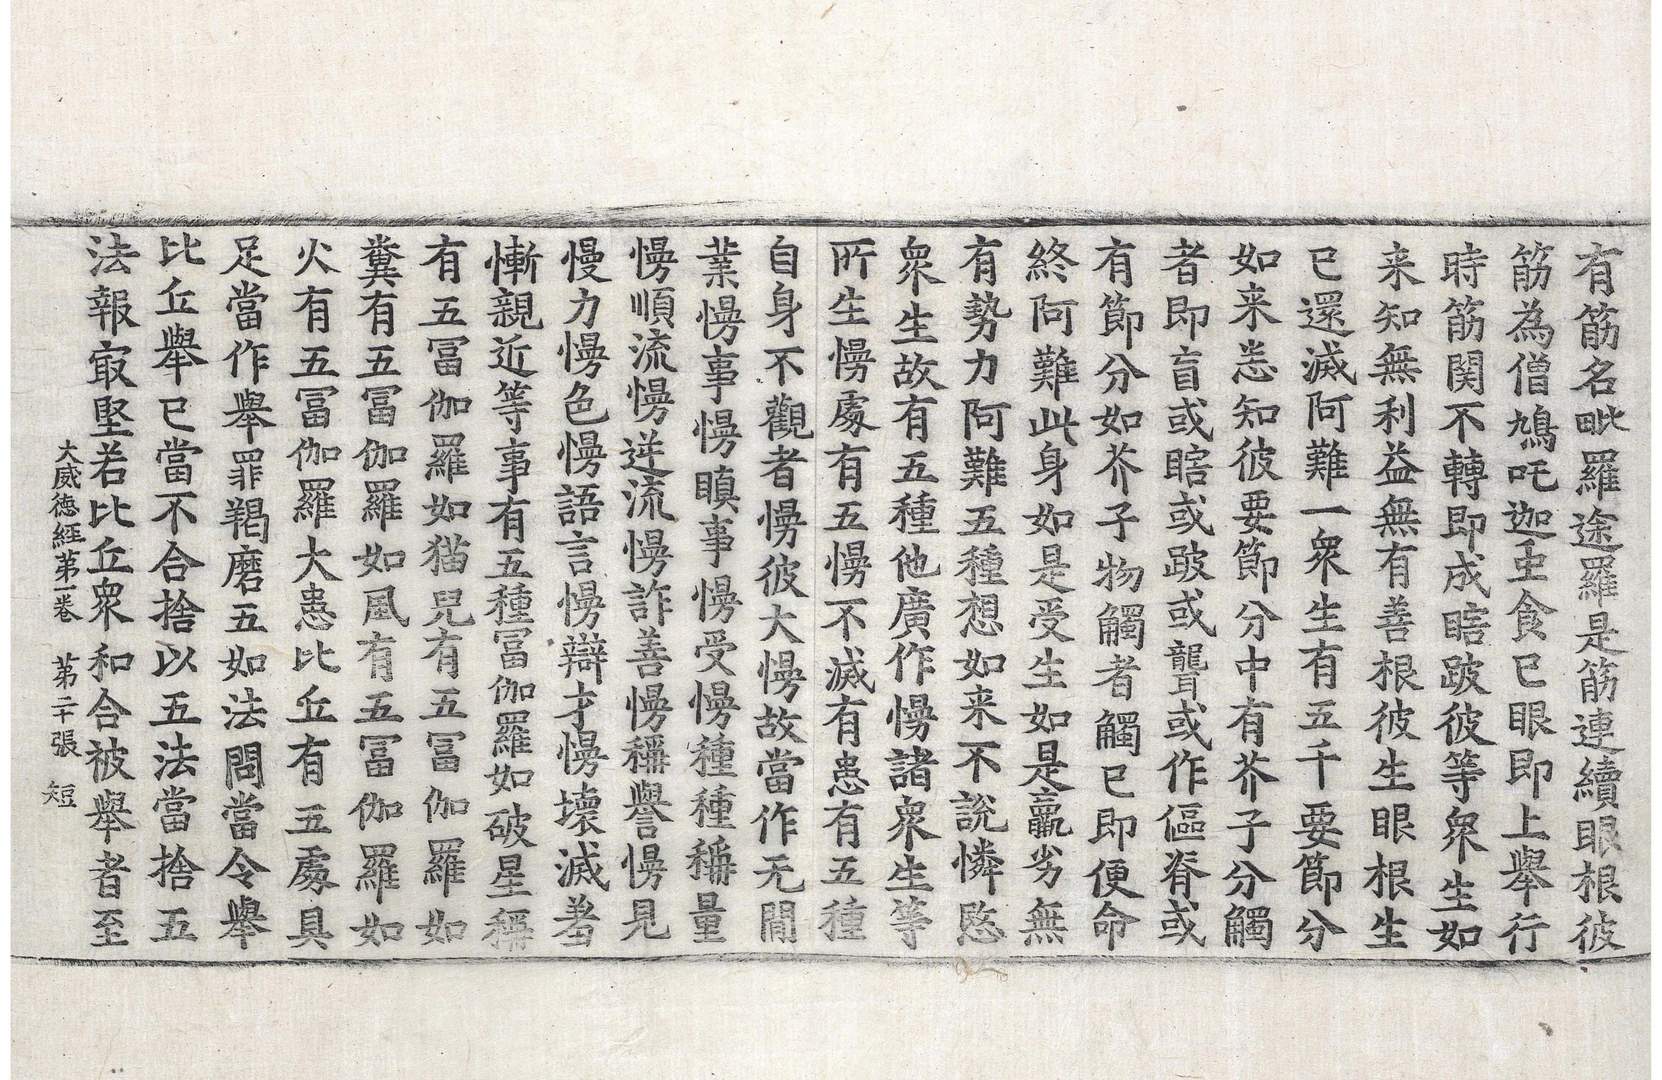 有筋名毗羅途羅是筋連續眼根彼
筋為僧鳩吒迦重食已眼即上舉行
時筋関不轉即成瞎跛彼等衆生如
来知無利益無有善根彼生眼根生
已還滅阿難一衆生有五千要節分
如来悉知彼要節分中有芥子分觸
者即盲或瞎或跛或聾或作傴脊或
有節分如芥子物觸者觸已即便命
終阿難此身如是受生如是羸劣無
有勢力阿難五種想如来不說憐愍
衆生故有五種他廣作慢諸衆生等
所生慢處有五慢不滅有患有五種
自身不觀者慢彼大慢故當作无閒
業慢事慢瞋事慢受慢種種稱量
慢順流慢逆流慢詐善慢稱譽慢見
慢力慢色慢語言慢辯才慢壞滅善
慚親近等事有五種冨伽羅如破星稱
有五冨伽羅如猫兒有五冨伽羅如
糞有五冨伽羅如風有五冨伽羅如
火有五冨伽羅大患比丘有五處具
足當作舉罪羯磨五如法問當令舉
比丘舉已當不合捨以五法當捨五
法報㝡堅若比丘衆和合被舉者至
大威德經第一卷 第二十張 短